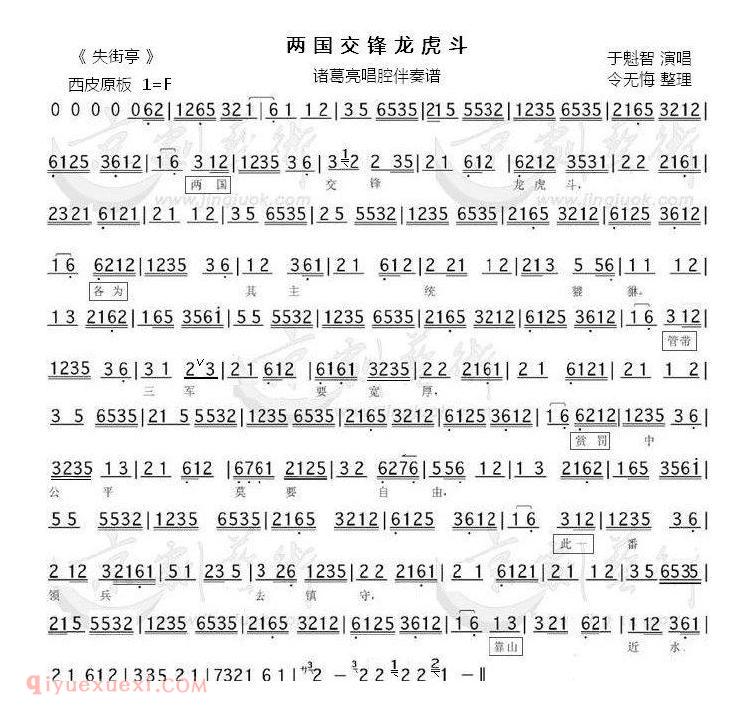 两国交锋龙虎斗
《 失街亭 》
诸葛亮唱腔伴奏谱
于魁智 演唱
西皮原板 1=F
令无悔 整理
0 0 0 0 062|1265 321|61 12|35 6535|215 5532|1235 6535|2165 3212|
6125 3612|16 312|1235 36|3 1 2 2 35|21 612|6212 3531|22 2161|
两国 交 锋 龙虎斗,
2321 6121|21 12|35 6535|25 5532|1235 6535|2165 3212|6125 3612|
16 6212|1235 36|12 361|21 612|2 21 12|213 5 56|12 12|
各为 其 主 统 貔 貅。
13 2162|165 356i|55 5532|1235 6535|2165 3212|6125 3612|16 312|
管带
1235 36|31 2v3|21612|6161 3235|22 21|21 6121|21 12|
三 军 要 宽 厚,
35 6535|215 5532|1235 6535|2165 3212|6125 3612|16 6212|1235 36|
赏罚 中
3235 13|21 612|6761 2125|32 6276|556 12|13 2162|165 356i|
公 平 莫 要 自 由,
55 5532|1235 6535|2165 3212|6125 3612|16 312|1235 36|
此一 番
2 12 32161|51 235|3 26 1235|22 2161|21 6121|21 12|35 6535|
领 兵 去 镇 守,
215 5532|1235 6535|2165 3212|6125 3612|16 13|321 621|112 361|
靠山 近 水
21 612|335 21|7321 61| 3 2 -3 2 2 1 2 2 2 1 -‖
qiyuexuexi.com
www.jingjuok.com